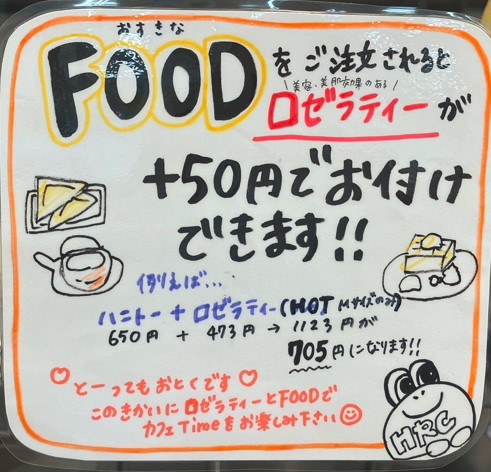 おすきな
FOODをご注文されると
\美容、美肌効果のある/
ロゼラティーが
+50円でお付け
できます!!
例えば...
ハニトー+ロゼラティー(HOT Mサイズのみ)
650円 + 473円 → 1123円が
705円になります!!
♡とーってもおとくです♡
このきかいにロゼラティーとFOODで
カフェTimeをお楽しみ下さい☺
HRC